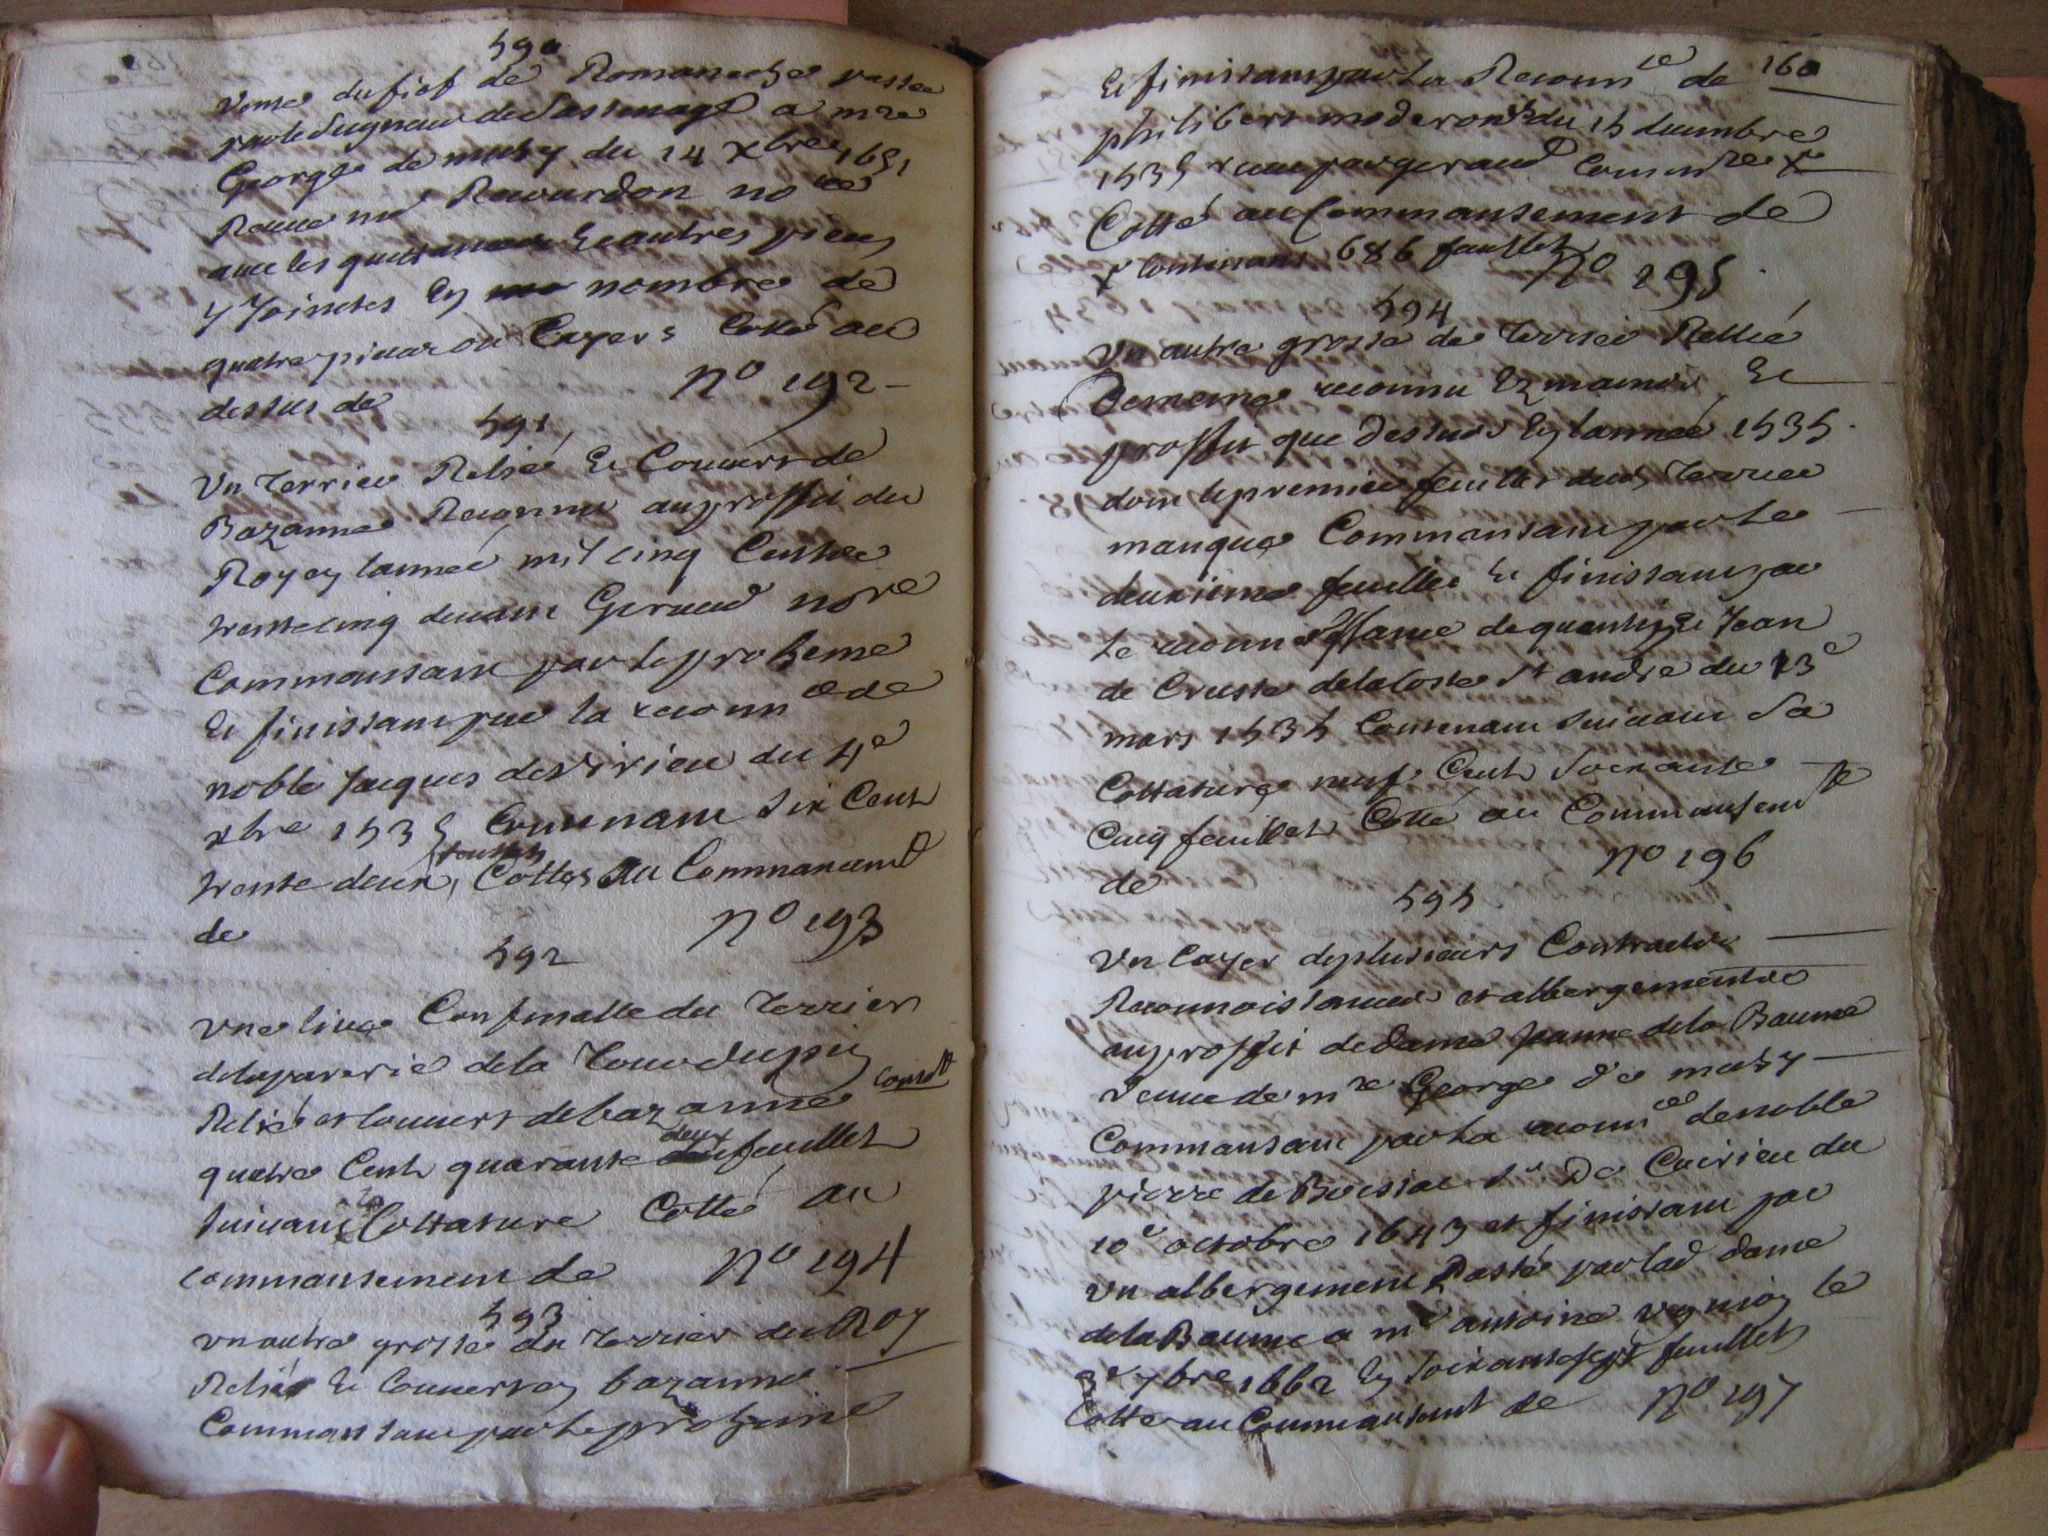 590
Vente du fief de Romaneche passée
par le Seigneur de Sassenage a mre
George de musy du 14 xbre 1651
Receue me Revourdon nore
avec les quittances Et autres pieces
y Jointes En nombre de
quatre pieces ou Cayers Cotté au
dessus de no 192
591
Un Terrier Relié Et Couvert de
Bazanne Reconnu au proffit du
Roy en lannée mil cinq Cents
trente cinq devant Geraud nore
Commansant par le proheme
Et finissant par la reconnce de
noble Jacques de Virieu du 4e
xbre 1535 Contenant Six Cent
trente deux feuillets Cottés Au Commancemt
de no 193
592
Une liue Confinalle du Terrier
de la parerie de la Tour du pin
Relié et Couvert de bazanne Contt
quatre Cent quarante deux feuillets
suivant la Cottature Cotté au
commansement de no 194
593
un autre grosse du Terrier du Roy
Relié Et Couvert en bazanne
Commansant par le proheme
160
Et finissant par la Reconnce de
philibert du 15 decembre
1535 receu par geraud Commre x
Cotté au Commansement de
x Contenant 686 feuillets no 195
594
Un autre grosse de Terrier Rellié
De meme reconnu En memes Et
proffit que dessus En lannée 1535
dont le premier feuillet dud Terrier
manque Commansant par le
deuxieme feuillet Et finissant par
le reconnoissance de quentin Et Jean
de Cruste de la Coste St andre du 13e
mars 1535 Contenant suivant Sa
Cottature neuf Cent Soixante
Cinq feuillets Cotté au Commansemt
de no 196
595
Un Cayer de plusieurs Contracts
Reconnoissances et albergements
au proffit de dame Jeanne de la Baume
veuve de mre George De musy
Commansant par la reconnce de noble
pierre de Boissac Sr De Cuirieu du
10e octobre 1643 et finissant par
un albergement Passé par lad dame
de la Baume a me antoine vignion le
3e 7bre 1662 En Soixante sept feuillets
Cotté au Commansemt de no 197